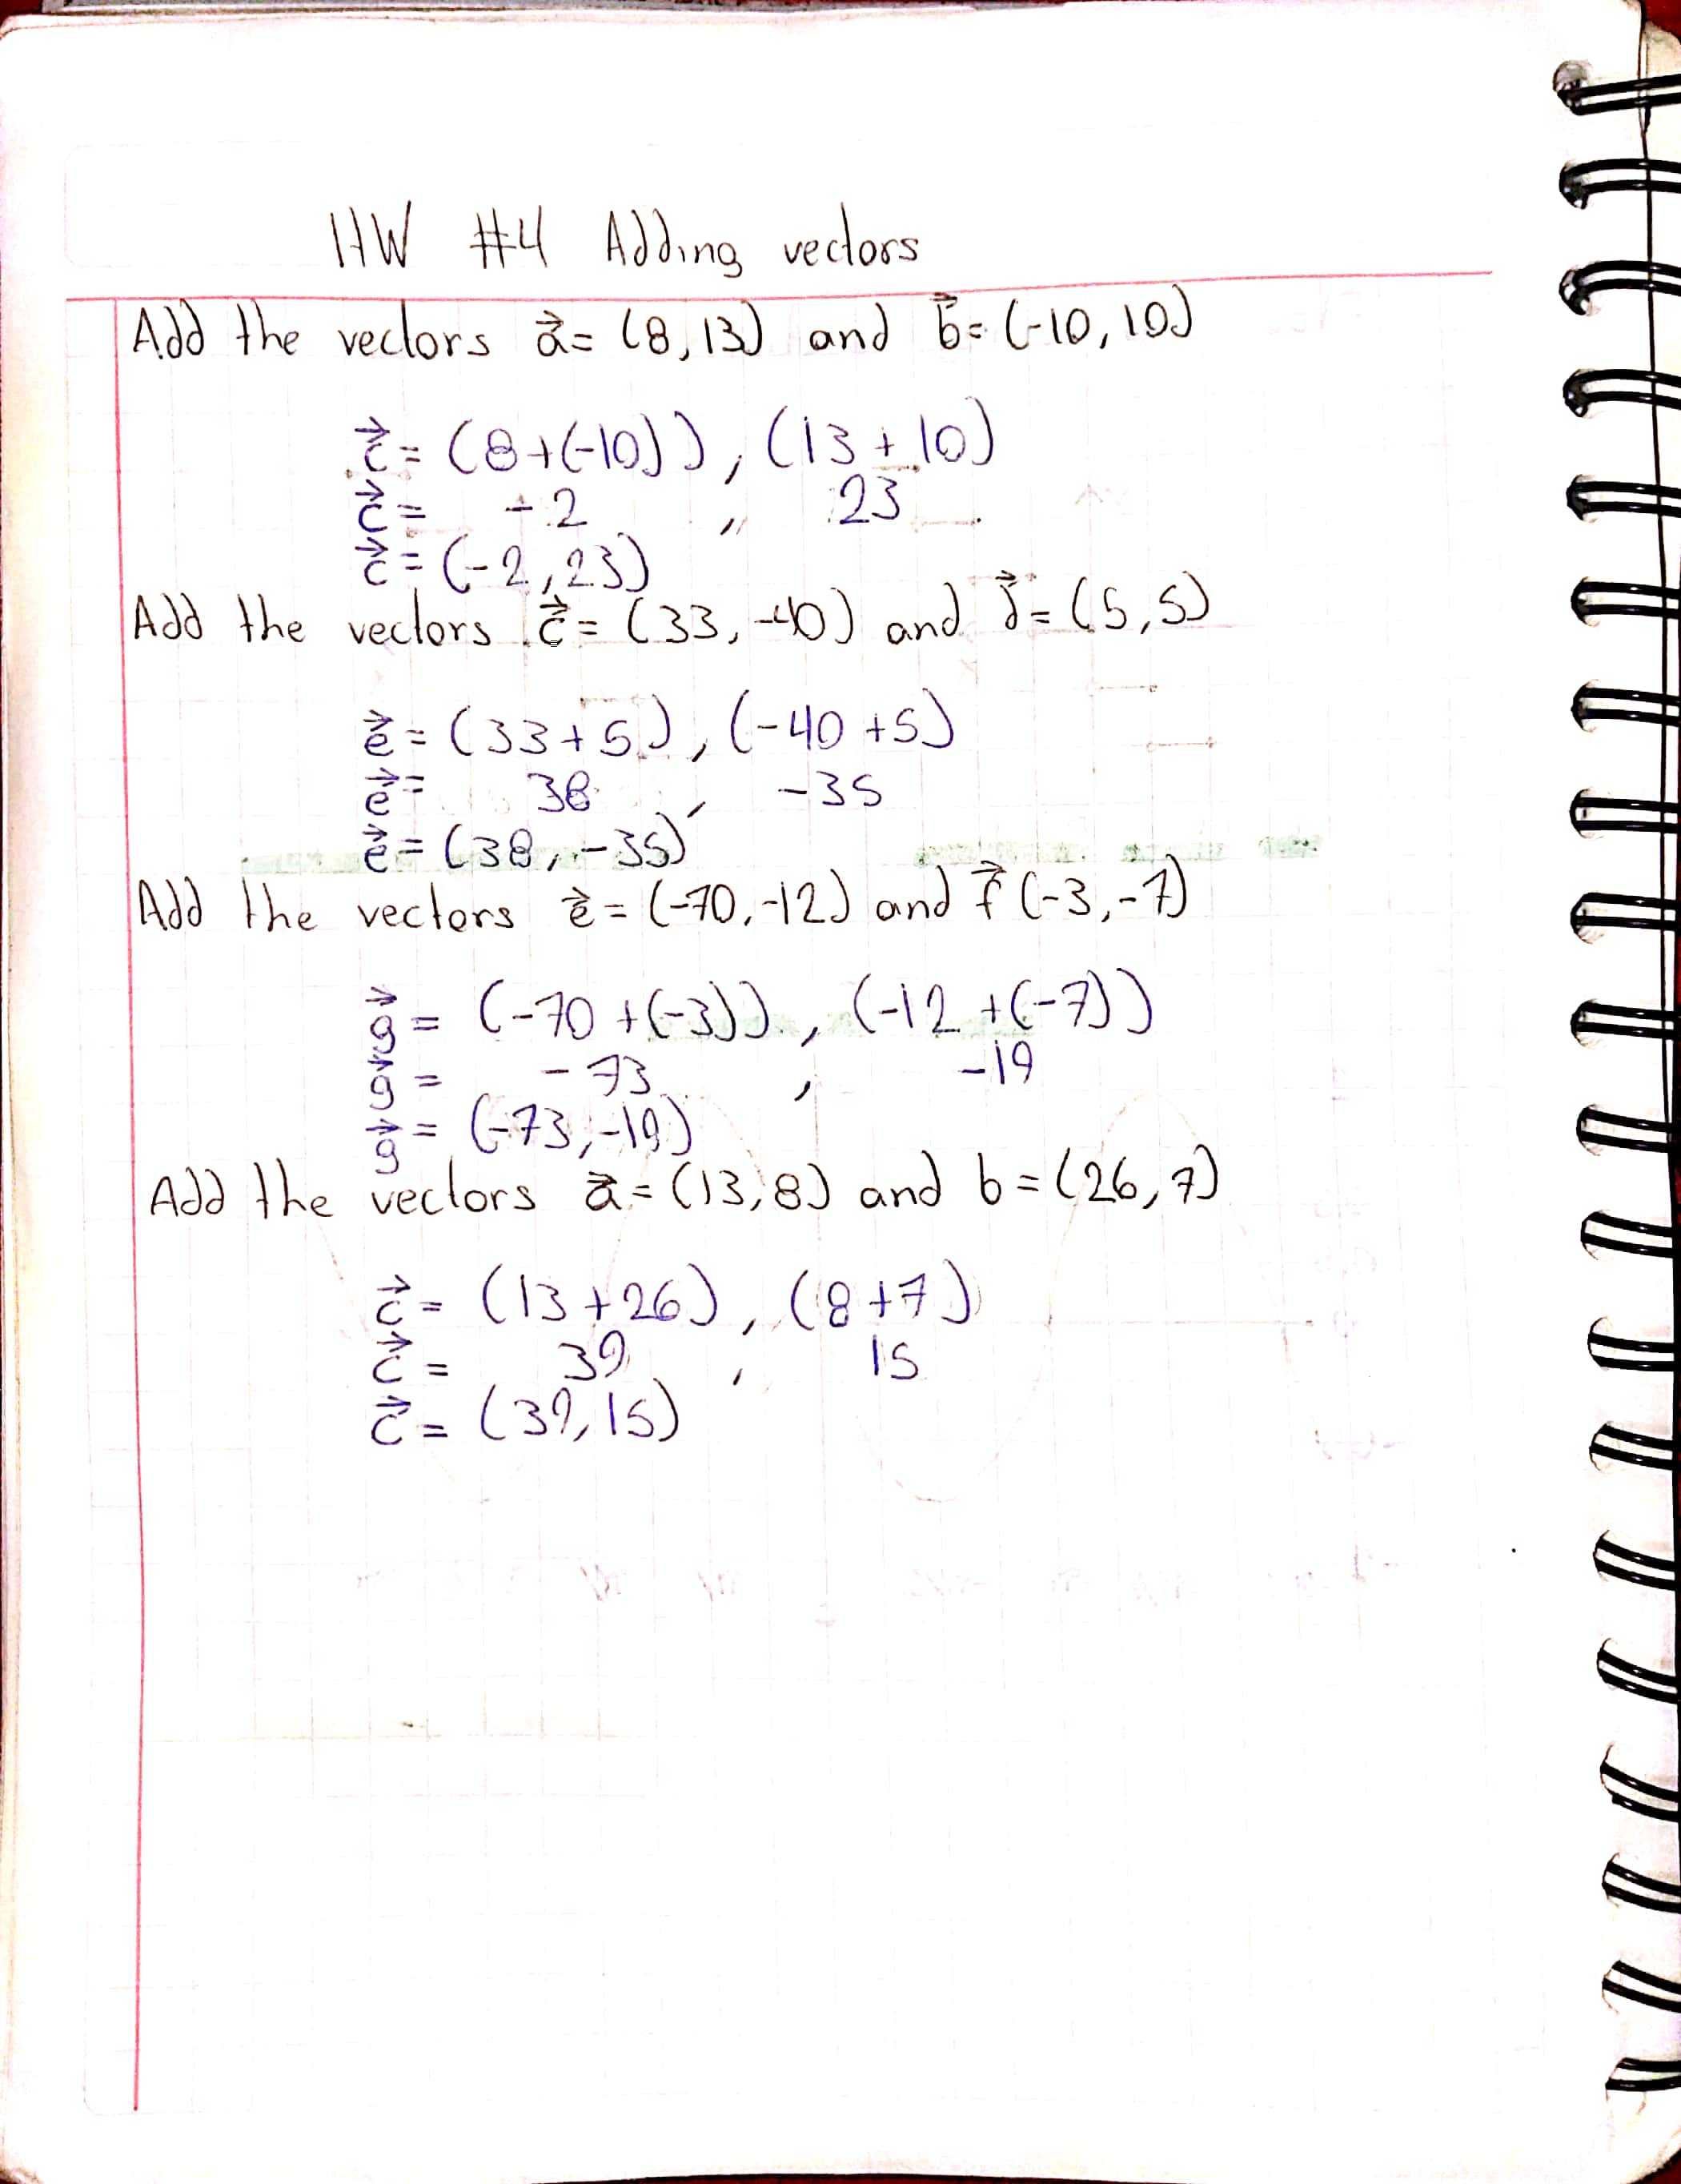 HW #4 Adding vectors
Add the vectors a⃗= (8,13) and b⃗= (-10,10)
c⃗= (8+(-10)), (13+10)
c⃗= -2 , 23
c⃗= (-2,23)
Add the vectors c⃗= (33,-40) and d⃗= (5,5)
e⃗= (33+5), (-40+5)
e⃗= 38 , -35
e⃗= (38,-35)
Add the vectors e⃗= (-70,-12) and f⃗ (-3,-7)
g⃗= (-70+(-3)), (-12+(-7))
g⃗= -73 , -19
g⃗= (-73,-19)
Add the vectors a⃗= (13,8) and b= (26,7)
c⃗= (13+26), (8+7)
c⃗= 39 , 15
c⃗= (39,15)